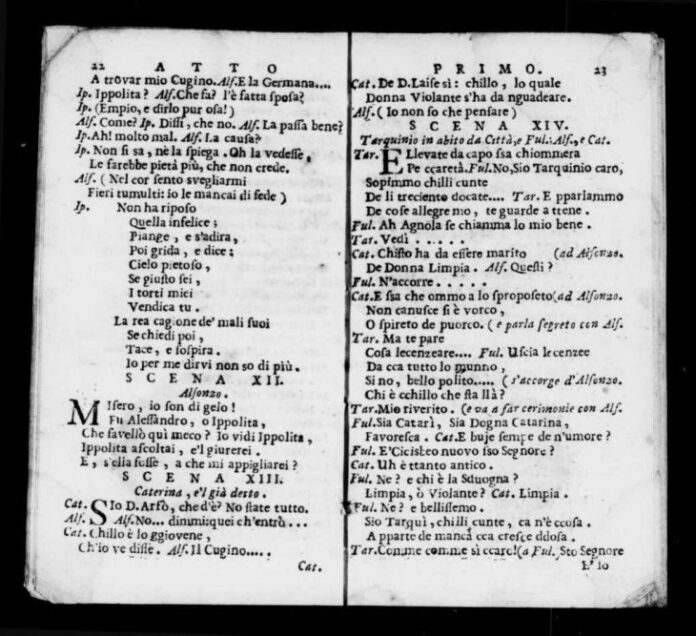 22 ATTO
A trovar mio Cugino. Alf. E la Germana....
Ip. Ippolita? Alf. Che fa? l'è fatta sposa?
Ip. (Empio, e dirlo pur osa!)
Alf. Come? Ip. Dissi, che no. Alf. La passa bene?
Ip. Ah! molto mal. Alf. La causa?
Ip. Non si sa, nè la spiega. Oh la vedesse,
Le farebbe pietà più, che non crede.
Alf. (Nel cor sento svegliarmi
Fieri tumulti: io le mancai di fede)
Ip. Non ha riposo
Quella infelice;
Piange, e s'adira,
Poi grida, e dice:
Cielo pietoso,
Se giusto sei,
I torti miei
Vendica tu.
La rea cagione de' mali suoi
Se chiedi poi,
Tace, e sospira.
Io per me dirvi non so di più.
SCENA XII.
Alfonzo.
Misero, io son di gelo!
Fu Alessandro, o Ippolita,
Che favellò quì meco? Io vidi Ippolita,
Ippolita ascoltai, e'l giurerei.
E, s'elia fosse, a che mi appigliarei?
SCENA XIII.
Caterina, e'l già detto.
Cat. Sio D. Arfo, che d'è? No state tutto.
Alf. Alf. No... dimmi: quei ch'entrò...
Cat. Chillo è lo ggiovene,
Ch'io ve disse. Alf. Il Cugino....
Cat.
PRIMO. 23
Cat. De D. Laise sì: chillo, lo quale
Donna Violante s'ha da nguadeare.
Alf. (Io non so che pensare)
SCENA XIV.
Tarquinio in abito da Città, e Ful. Alf., e Cat.
Tar. ELlevate da capo ssa chiommera
Pe ccaretà. Ful. No, Sio Tarquinio caro,
Sopimmo chilli cunte
De li treciento docate.... Tar. E ppariammo
De cose allegre mo, te guarde a ttene.
Ful. Ah Agnola se chiamma lo mio bene.
Tar. Vedi.....
Cat. Chisto ha da essere marito (ad Alfonzo.
De Donna Limpia. Alf. Questi?
Ful. N'accorre.....
Cat. E ssa che ommo a lo sproposeto (ad Alfonzo.
Non canusce si è vorco,
O spireto de puorco. (e parla segreto con Alf.
Tar. Ma te pare
Cosa lecenzeare.... Ful. Uscia lecenzee
Da cca tutto lo munno,
Si no, bello polito..... (s'accorge d'Alfonzo.
Chi è cchillo che sta llà?
Tar. Mio riverito. (e va a far cerimonie con Alf.
Ful. Sia Catarì, Sia Dogna Catarina,
Favoresca. Cat. E buje sempe de n'umore?
Ful. E' Cicisbeo nuovo sso Segnore?
Cat. Uh è ttanto antico.
Ful. Ne? e chi è la Sduogna?
Limpia, ò Violante? Cat. Limpia.
Ful. Ne? e bellissemo.
Sio Tarquì, chilli cunte, ca n'è ccosa.
A pparte de mancà cca cresce ddosa.
Tar. Comme comme sì ccaro! (a Ful. Sto Segnore
E' lo